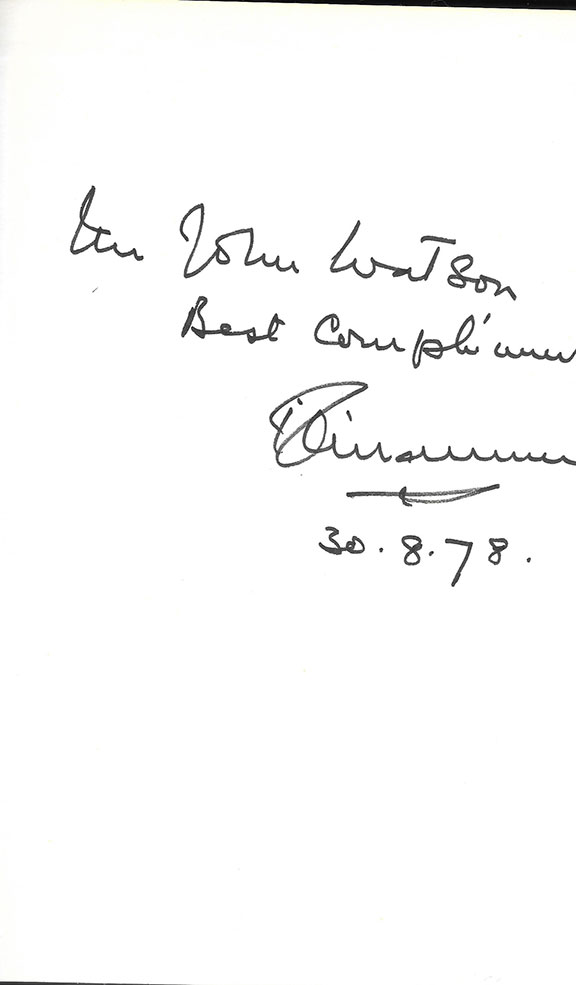 Mr John Watson
Best Complimen
30.8.78.